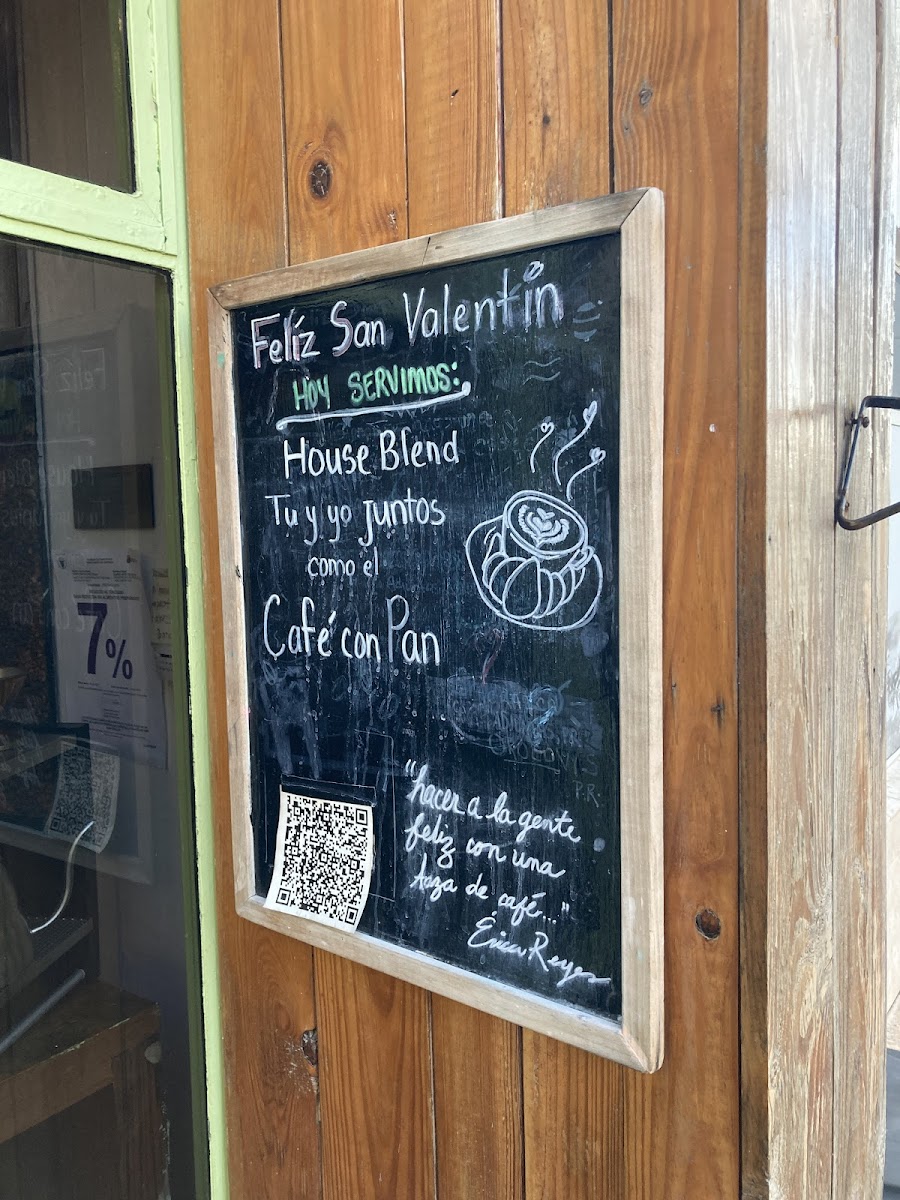 Felíz San Valentín
HOY SERVIMOS:
House Blend
Tu y yo juntos
como el
Café con Pan
P.R.
"hacer a la gente
feliz con una
taza de café..."
Érica Reyes
7%